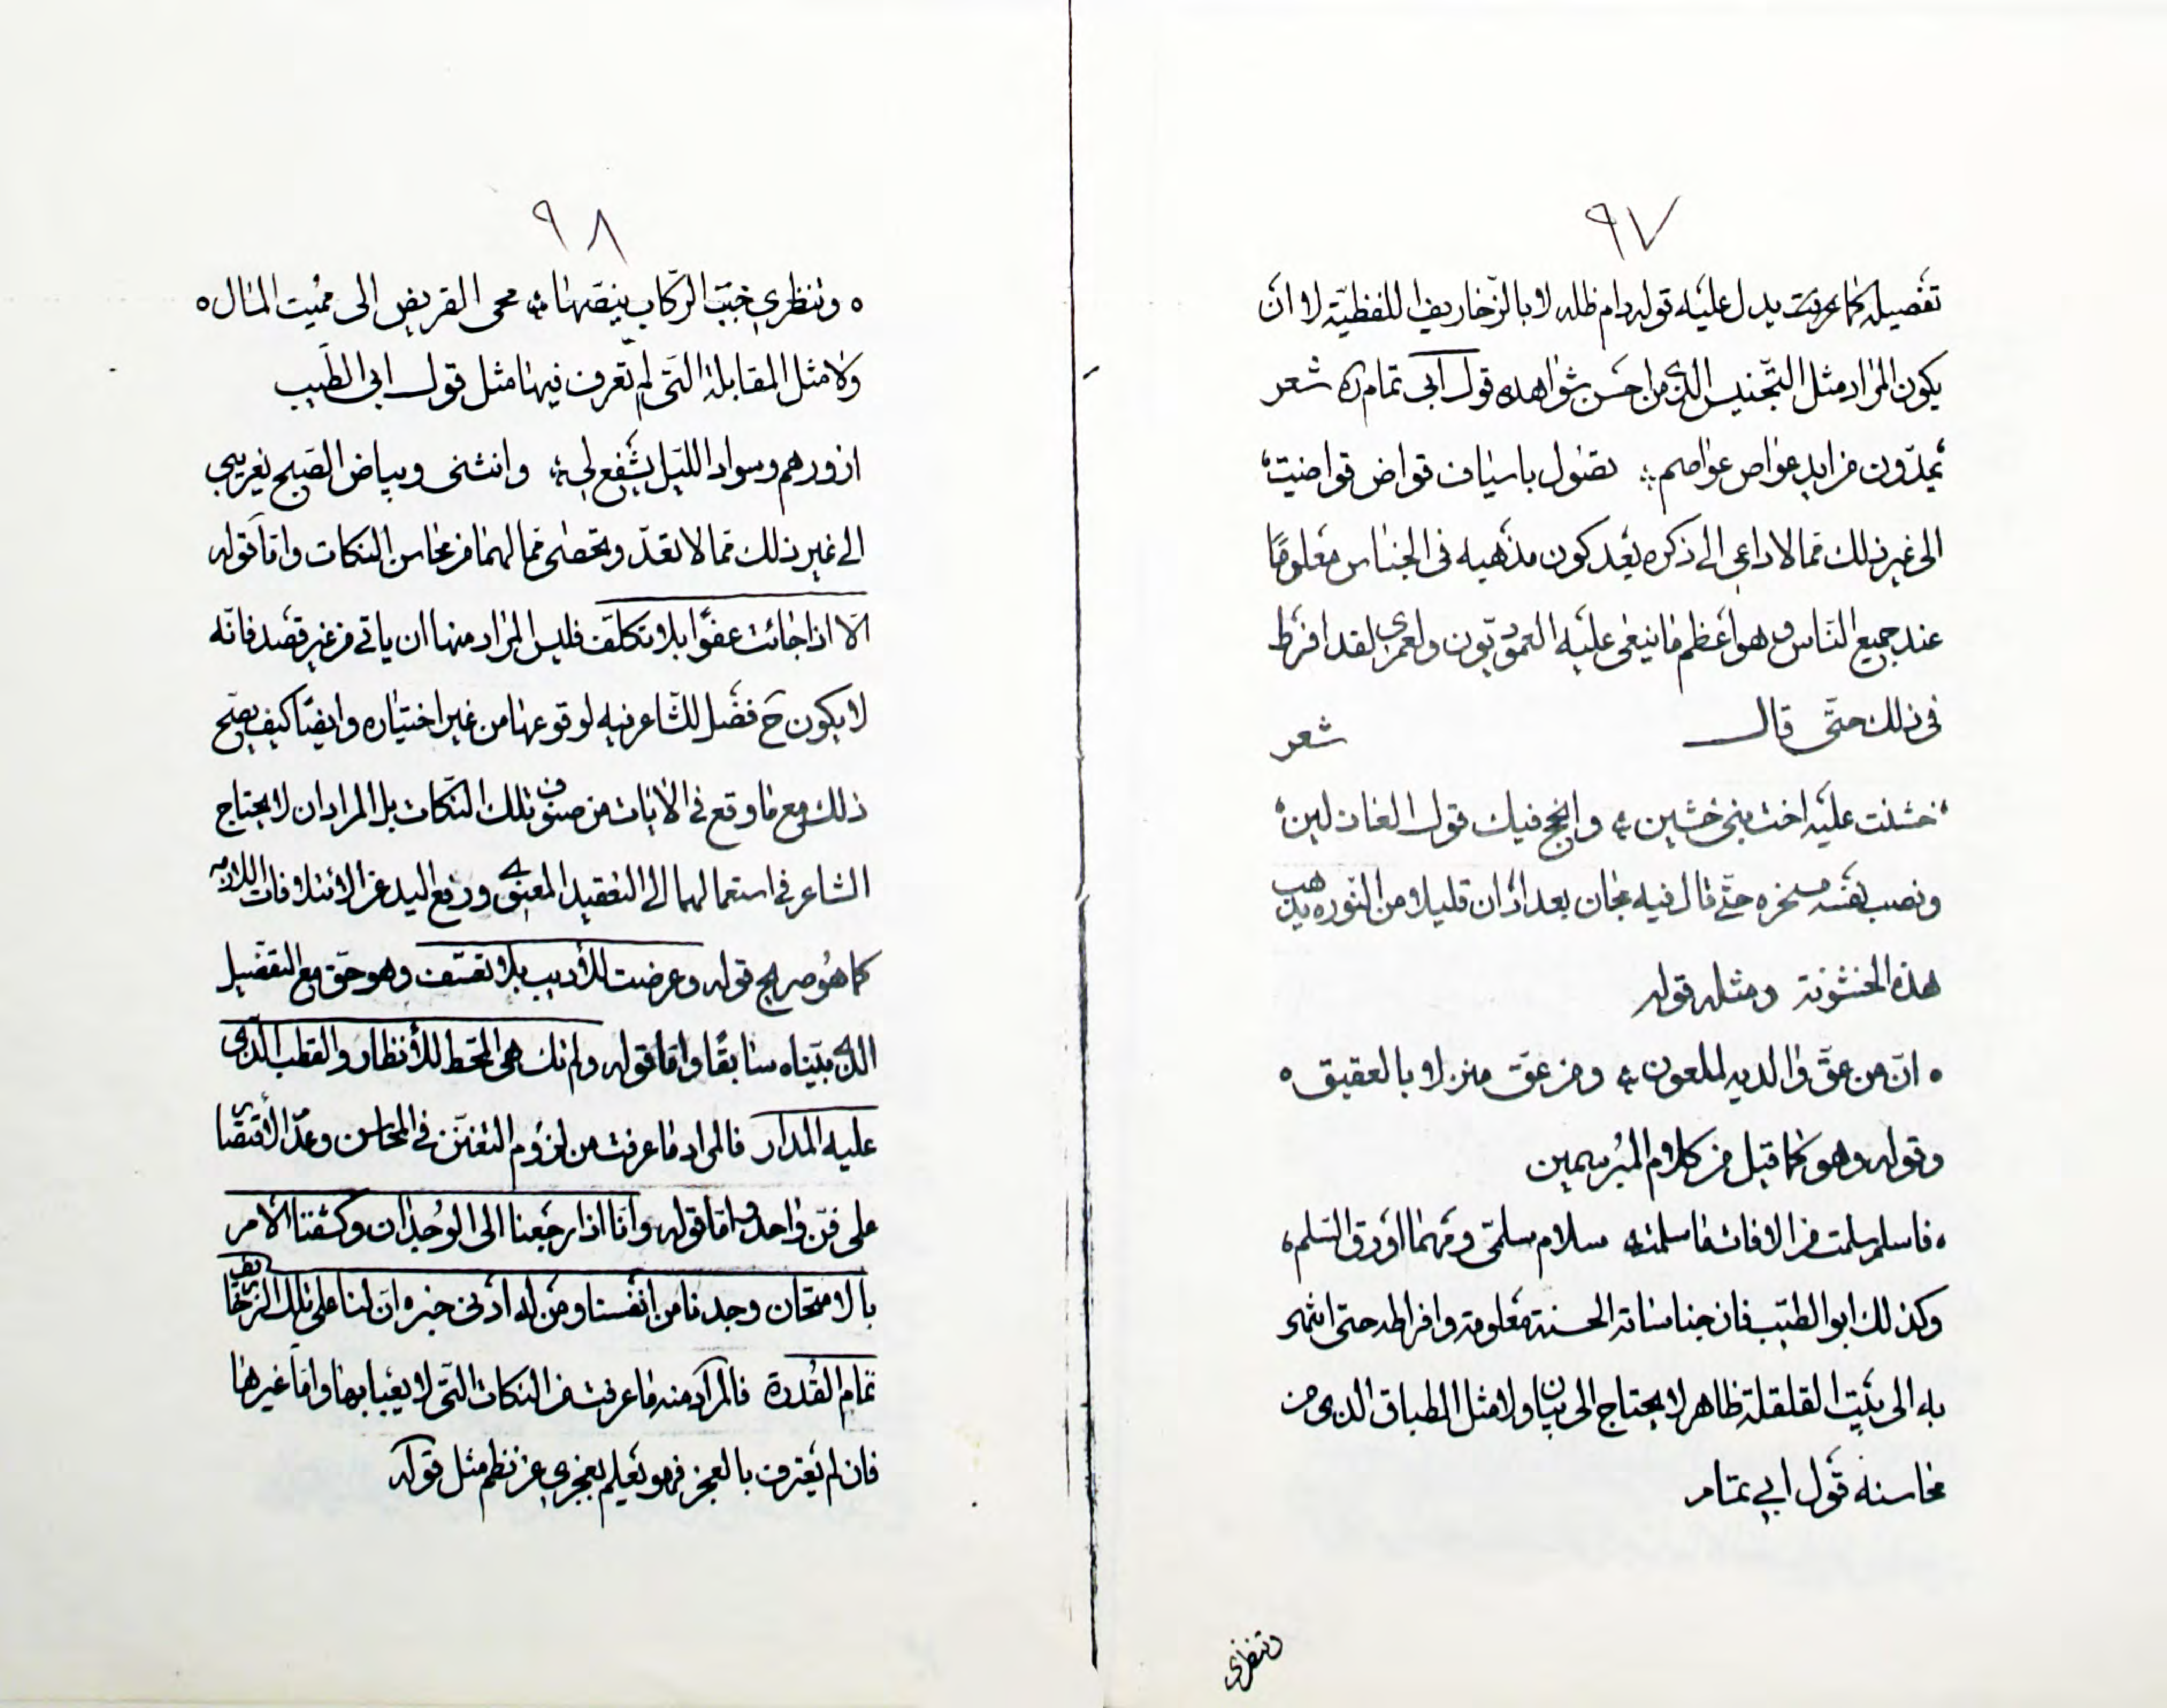 ٩٧
تفصيله كما عرفت يدل عليه قوله دام ظله لا بالزخاريف اللفظيّة لا ان
يكون المراد مثل التجنيس الذى من احسن شواهده قول ابى تمام ره شعر
يمدّون من ايد عواص عواصم ؞ تصول باسياف قواض قواضب
الى غير ذلك ممّا لا داعى الى ذكره بعد كون مذهبه فى الجناس معلومًا
عند جميع الناس و هو اعظم ما ينعى عليه العموديّون ولعمرى لقد افرط
فى ذلك حتّى قال شعر
خشنت عليه اخت بنى خشين ؞ وانجح فيك قول العاذلين
ونصب نفسه مسخره حتّى قال فيه مجان بغداد ان قليلا من النوره يذهب
هذه الخشونة ومثله قوله
ه انّ من عقّ والديه لملعون ؞ ومن عقّ منزلا بالعقيق ه
وقوله وهو كما قيل من كلام المبرسمين
فاسلم سلمت من الافات ما سلمت ؞ سلام سلمى ومهما اورق السّلم
وكذلك ابو الطيّب فان جناساته الحسنة معلومة وافراطه حتى انتهى
به الى بيت القلقلة ظاهر لا يحتاج الى بيان ولا مثل الطباق الذى من
محاسنه قول ابي تمام
وتنظرى
٩٨
ه وتنظرى خبب الركاب ينصّها ؞ محى القريض الى مميت المال ه
ولا مثل المقابلة التى لم تعرف فيها مثل قول ابى الطيب
ازورهم وسواد الليل يشفع لى ؞ وانثنى وبياض الصبح يغرى بي
الى غير ذلك ممّا لا تعدّ وتحصى مما لهما من محاسن النكات وامّا قوله
الّا اذا جائت عفوًا بلا تكلّف فليس المراد منها ان ياتى من غير قصد فانّه
لا يكون ح فضل للشاعر فيه لوقوعها من غير اختياره وايضًا كيف يصحّ
ذلك مع ما وقع فى الابيات من صنوف تلك النكات بل المراد ان لا يحتاج
الشاعر فى استعمالهما الى التعقيد المعنوى ورفع اليد عن الائتلافات اللازمه
كما هو صريح قوله وعرضت للأديب بلا تعسّف وهو حقّ مع التفصيل
الذى بيّناه سابقًا وامّا قوله ولم تك هى المحط للأنظار والقطب الّذى
عليه المدار فالمراد ما عرفت من لزوم التفنّن فى المحاسن وعدم الأقتصار
على فنّ واحد وامّا قوله وانّا اذا رجعنا الى الوجدان وكشفنا الأمر
بالامتحان وجدنا من انفسنا ومن له ادنى خبره انّ لنا على تلك الزخاريف
تمام القدرة فالمراد منه ما عرفت من النكات التى لا يعبا بها وامّا غيرها
فان لم يعترف بالعجز فهو يعلم بعجزى عن نظم مثل قوله